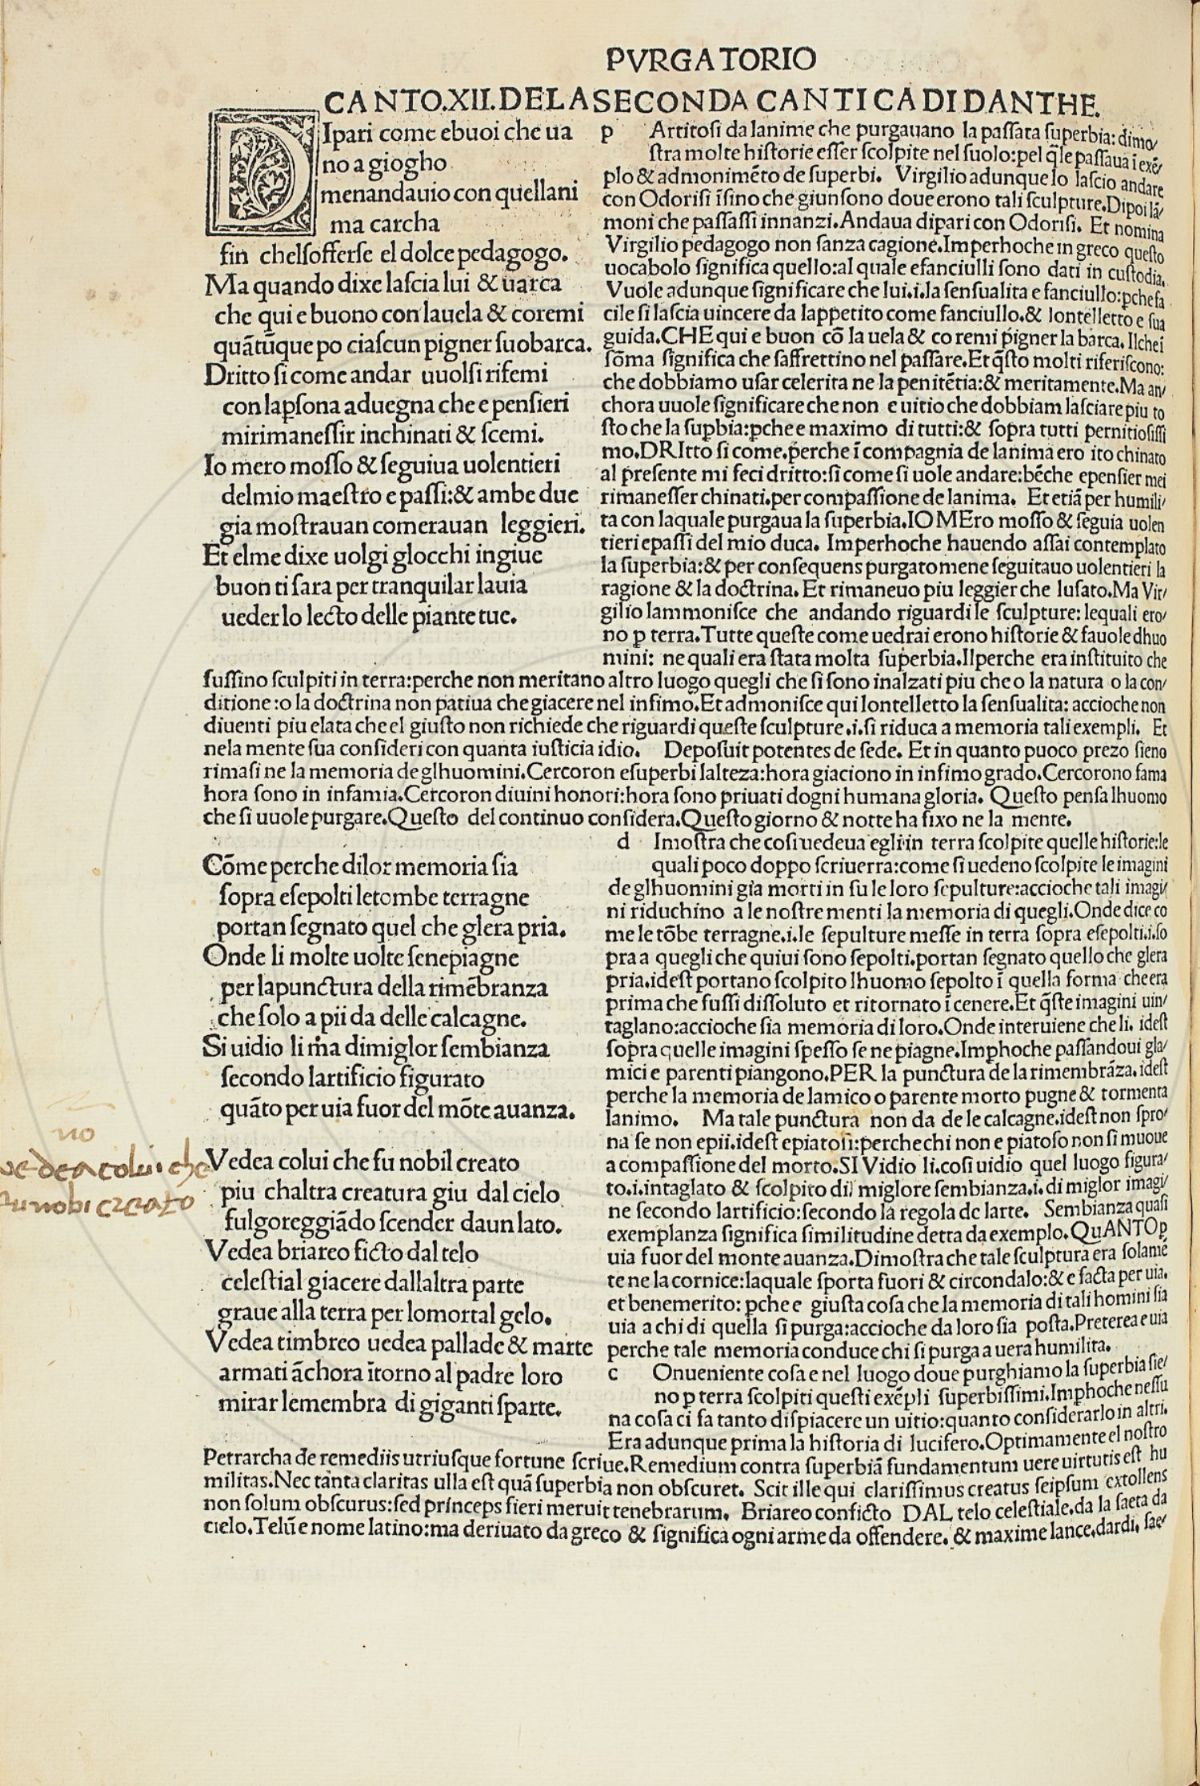 PVRGATORIO
CANTO.XII.DELASECONDA CANTICA DI DANTHE.
DIpari come ebuoi che ua
no a giogho
menandauio con quellani
ma carcha
fin chelsofferse el dolce pedagogo.
Ma quando dixe lascia lui & uarca
che qui e buono con lauela & coremi
quãtũque po ciascun pigner suobarca.
Dritto si come andar uuolsi rifemi
con lapsona aduegna che e pensieri
mirimanessir inchinati & scemi.
Io mero mosso & seguiua uolentieri
delmio maestro e passi:& ambe due
gia mostrauan comerauan leggieri.
Et elme dixe uolgi glocchi ingiue
buon ti sara per tranquilar lauia
ueder lo lecto delle piante tue.
p Artitosi da lanime che purgauano la passata superbia: dimo/
stra molte historie esser scolpite nel suolo:pel q̃le passaua i exẽ/
plo & admonimẽto de superbi. Virgilio adunque lo lascio andare
con Odorisi ĩsino che giunsono doue erono tali sculpture.Dipoi lã/
moni che passassi innanzi.Andaua dipari con Odorisi. Et nomina
Virgilio pedagogo non sanza cagione.Imperhoche in greco questo
uocabolo significa quello:al quale efanciulli sono dati in custodia.
Vuole adunque significare che lui.i.la sensualita e fanciullo:pche fa
cile si lascia uincere da lappetito come fanciullo.& lontelletto e sua
guida.CHE qui e buon cõ la uela & co remi pigner la barca. Ilchei
sõma significa che saffrettino nel passare.Et q̃sto molti riferiscono:
che dobbiamo usar celerita ne la penitẽtia:& meritamente.Ma an/
chora uuole significare che non e uitio che dobbiam lasciare piu to
sto che la supbia:pche e maximo di tutti:& sopra tutti pernitiosissi
mo.DRItto si come.perche ĩ compagnia de lanima ero ito chinato
al presente mi feci dritto:si come si uole andare:bẽche epensier mei
rimanesser chinati.per compassione de lanima. Et etiã per humili/
ta con laquale purgaua la superbia.IO MEro mosso & seguia uolen
tieri epassi del mio duca. Imperhoche hauendo assai contemplato
la superbia:& per consequens purgatomene seguitauo uolentieri la
ragione & la doctrina. Et rimaneuo piu leggier che lusato.Ma Vir/
gilio lammonisce che andando riguardi le sculpture: lequali ero/
no p terra.Tutte queste come uedrai erono historie & fauole dhuo
mini: ne quali era stata molta superbia.Ilperche era instituito che
fussino sculpiti in terra:perche non meritano altro luogo quegli che si sono inalzati piu che o la natura o la con/
ditione:o la doctrina non patiua che giacere nel infimo.Et admonisce qui lontelletto la sensualita: accioche non
diuenti piu elata che el giusto non richiede che riguardi queste sculpture.i.si riduca a memoria tali exempli. Et
nela mente sua consideri con quanta iusticia idio. Deposuit potentes de sede. Et in quanto puoco prezo sieno
rimasi ne la memoria de glhuomini.Cercoron esuperbi lalteza:hora giaciono in infimo grado.Cercorono fama
hora sono in infamia.Cercoron diuini honori:hora sono priuati dogni humana gloria. Questo pensa lhuomo
che si uuole purgare.Questo del continuo considera.Questo giorno & notte ha fixo ne la mente.
Cõme perche dilor memoria sia
sopra esepolti letombe terragne
portan segnato quel che glera pria.
Onde li molte uolte senepiagne
per lapunctura della rimẽbranza
che solo a pii da delle calcagne.
Si uidio li ma dimiglor sembianza
secondo lartificio figurato
quãto per uia fuor del mõte auanza.
Vedea colui che fu nobil creato
piu chaltra creatura giu dal cielo
fulgoreggiãdo scender daun lato.
Vedea briareo ficto dal telo
celestial giacere dallaltra parte
graue alla terra per lomortal gelo.
Vedea timbreo uedea pallade & marte
armati ãchora ĩtorno al padre loro
mirar lemembra di giganti sparte.
d Imostra che cosi uedeua egli in terra scolpite quelle historie:le
quali poco doppo scriuerra:come si uedeno scolpite le imagini
de glhuomini gia morti in su le loro sepulture:accioche tali imagi/
ni riduchino a le nostre menti la memoria di quegli.Onde dice co
me le tõbe terragne.i.le sepulture messe in terra sopra esepolti.i.so
pra a quegli che quiui sono sepolti.portan segnato quello che glera
pria.idest portano scolpito lhuomo sepolto ĩ quella forma che era
prima che fussi dissoluto et ritornato ĩ cenere.Et q̃ste imagini uin/
taglano:accioche sia memoria di loro.Onde interuiene che li. idest
sopra quelle imagini spesso se ne piagne.Imphoche passandoui gla/
mici e parenti piangono.PER la punctura de la rimembrãza.idest
perche la memoria de lamico o parente morto pugne & tormenta
lanimo. Ma tale punctura non da de le calcagne.idest non spro/
na se non epii.idest epiatosi:perche chi non e piatoso non si muoue
a compassione del morto.SI Vidio li.cosi uidio quel luogo figura/
to.i.intaglato & scolpito di miglore sembianza.i. di miglor imagi/
ne secondo lartificio:secondo la regola de larte. Sembianza quasi
exemplanza significa similitudine detta da exemplo.QuANTO p
uia fuor del monte auanza.Dimostra che tale sculptura era solamẽ
te ne la cornice:laquale sporta fuori & circondalo:& e facta per uia.
et benemerito: pche e giusta cosa che la memoria di tali homini sia
uia a chi di quella si purga:accioche da loro sia posta.Preterea e uia
perche tale memoria conduce chi si purga a uera humilita.
c Onueniente cosa e nel luogo doue purghiamo la superbia sie/
no p terra scolpiti questi exẽpli superbissimi.Imphoche nessu
na cosa ci fa tanto dispiacere un uitio:quanto considerarlo in altri.
Era adunque prima la historia di lucifero.Optimamente el nostro
Petrarcha de remediis utriusque fortune scriue.Remedium contra superbiã fundamentum uere uirtutis est hu
militas.Nec tanta claritas ulla est quã superbia non obscuret. Scit ille qui clarissimus creatus seipsum extollens
non solum obscurus:sed princeps fieri meruit tenebrarum. Briareo conficto DAL telo celestiale.da la saeta da
cielo.Telũ e nome latino:ma deriuato da greco & significa ogni arme da offendere. & maxime lance.dardi. sae/
no
ue dea colui che
fu nobi creato